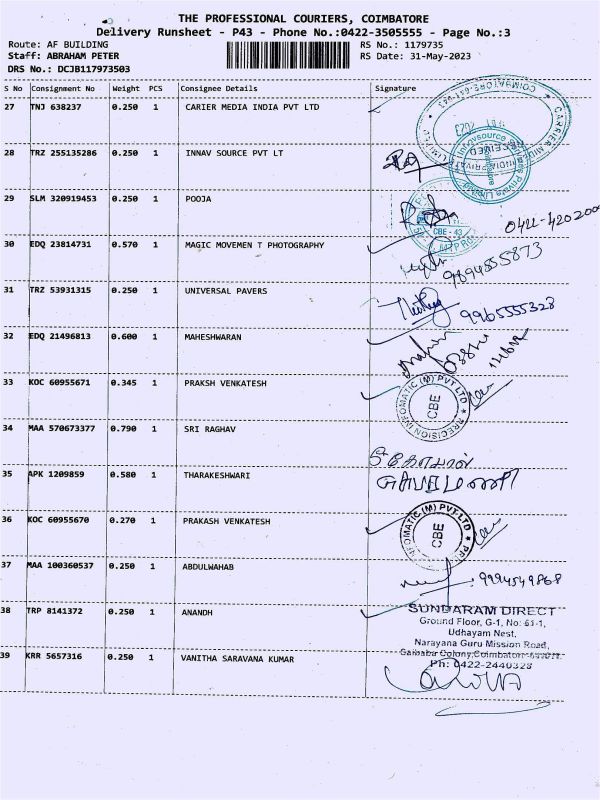 THE PROFESSIONAL COURIERS, COIMBATORE
Delivery Runsheet - P43 - Phone No.:0422-3505555 - Page No.:3
Route: AF BUILDING
RS No.: 1179735
Staff: ABRAHAM PETER
RS Date: 31-May-2023
DRS No.: DCJB117973503
S No Consignment No Weight PCS Consignee Details Signature
27 TNJ 638237 0.250 1 CARIER MEDIA INDIA PVT LTD
28 TRZ 255135286 0.250 1 INNAV SOURCE PVT LT
29 SLM 320919453 0.250 1 POOJA
CBE - 43
30 EDQ 23814731 0.570 1 MAGIC MOVEMEN T PHOTOGRAPHY
9894555873
31 TRZ 53931315 0.250 1 UNIVERSAL PAVERS
9965555328
32 EDQ 21496813 0.600 1 MAHESHWARAN
33 KOC 60955671 0.345 1 PRAKSH VENKATESH
PRECISION INFOMATIC (M) PVT LTD
CBE
34 MAA 570673377 0.790 1 SRI RAGHAV
35 APK 1209859 0.580 1 THARAKESHWARI
36 KOC 60955670 0.270 1 PRAKASH VENKATESH
CBE
37 MAA 100360537 0.250 1 ABDULWAHAB
9994549868
38 TRP 8141372 0.250 1 ANANDH
SUNDARAM DIRECT
Ground Floor, G-1, No: 61-1,
Udhayam Nest,
Narayana Guru Mission Road,
39 KRR 5657316 0.250 1 VANITHA SARAVANA KUMAR
Ph: 0422-2440328